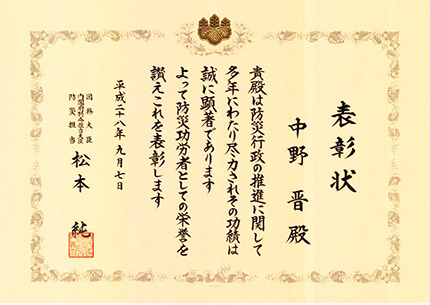 表彰状
中野 晋 殿
貴殿は防災行政の推進に関して
多年にわたり尽力されその功績は
誠に顕著であります
よって防災功労者としての栄誉を
讃えこれを表彰します
平成二十八年九月七日
国務大臣
内閣府特命担当大臣
防災担当
松本 純